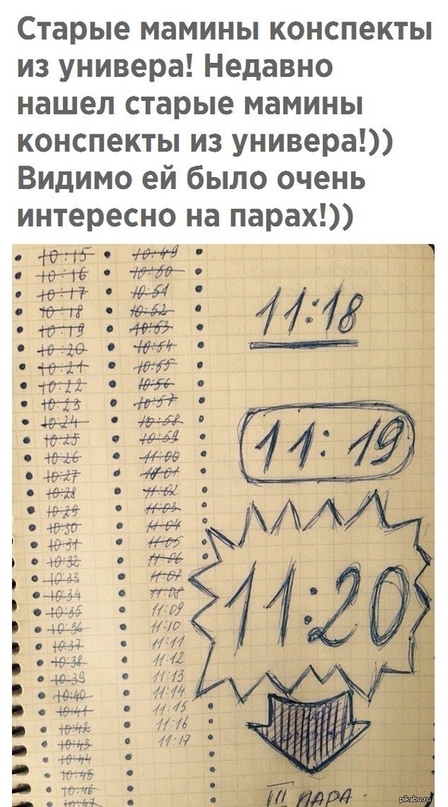 Старые мамины конспекты
из универа! Недавно
нашел старые мамины
конспекты из универа!))
Видимо ей было очень
интересно на парах!))
10:15
10:16
10:17
10:18
10:19
10:20
10:21
10:22
10:23
10:24
10:25
10:26
10:27
10:28
10:29
10:30
10:31
10:32
10:33
10:34
10:35
10:36
10:37
10:38
10:39
10:40
10:41
10:42
10:43
10:44
10:45
10:46
10:47
10:49
10:50
10:51
10:52
10:53
10:54
10:55
10:56
10:57
10:58
10:59
11:00
11:01
11:02
11:03
11:04
11:05
11:06
11:07
11:08
11:09
11:10
11:11
11:12
11:13
11:14
11:15
11:16
11:17
11:18
11:19
11:20
III ПАРА
pikabu.ru